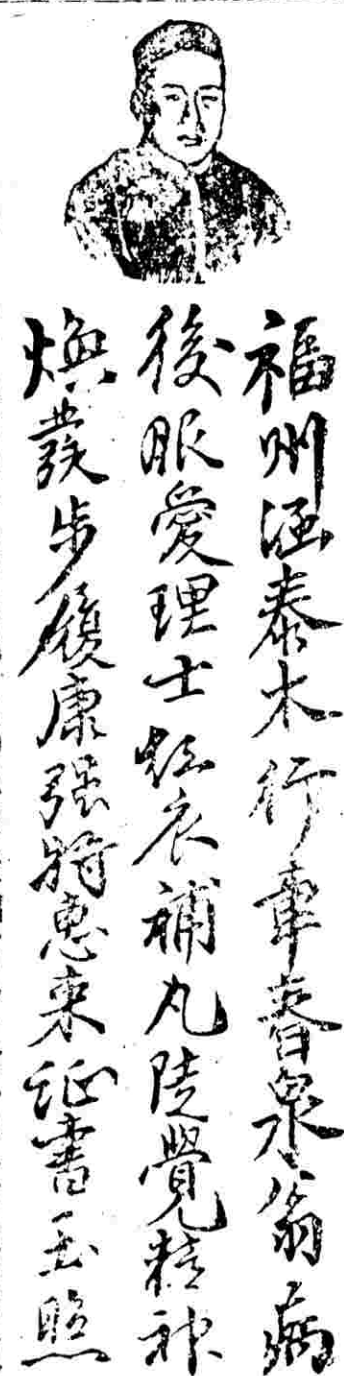 福州涵泰木行韋春泉翁病
後眼愛理士紅衣補丸陡覺精神
煥發步履康强特惠来証書玉照